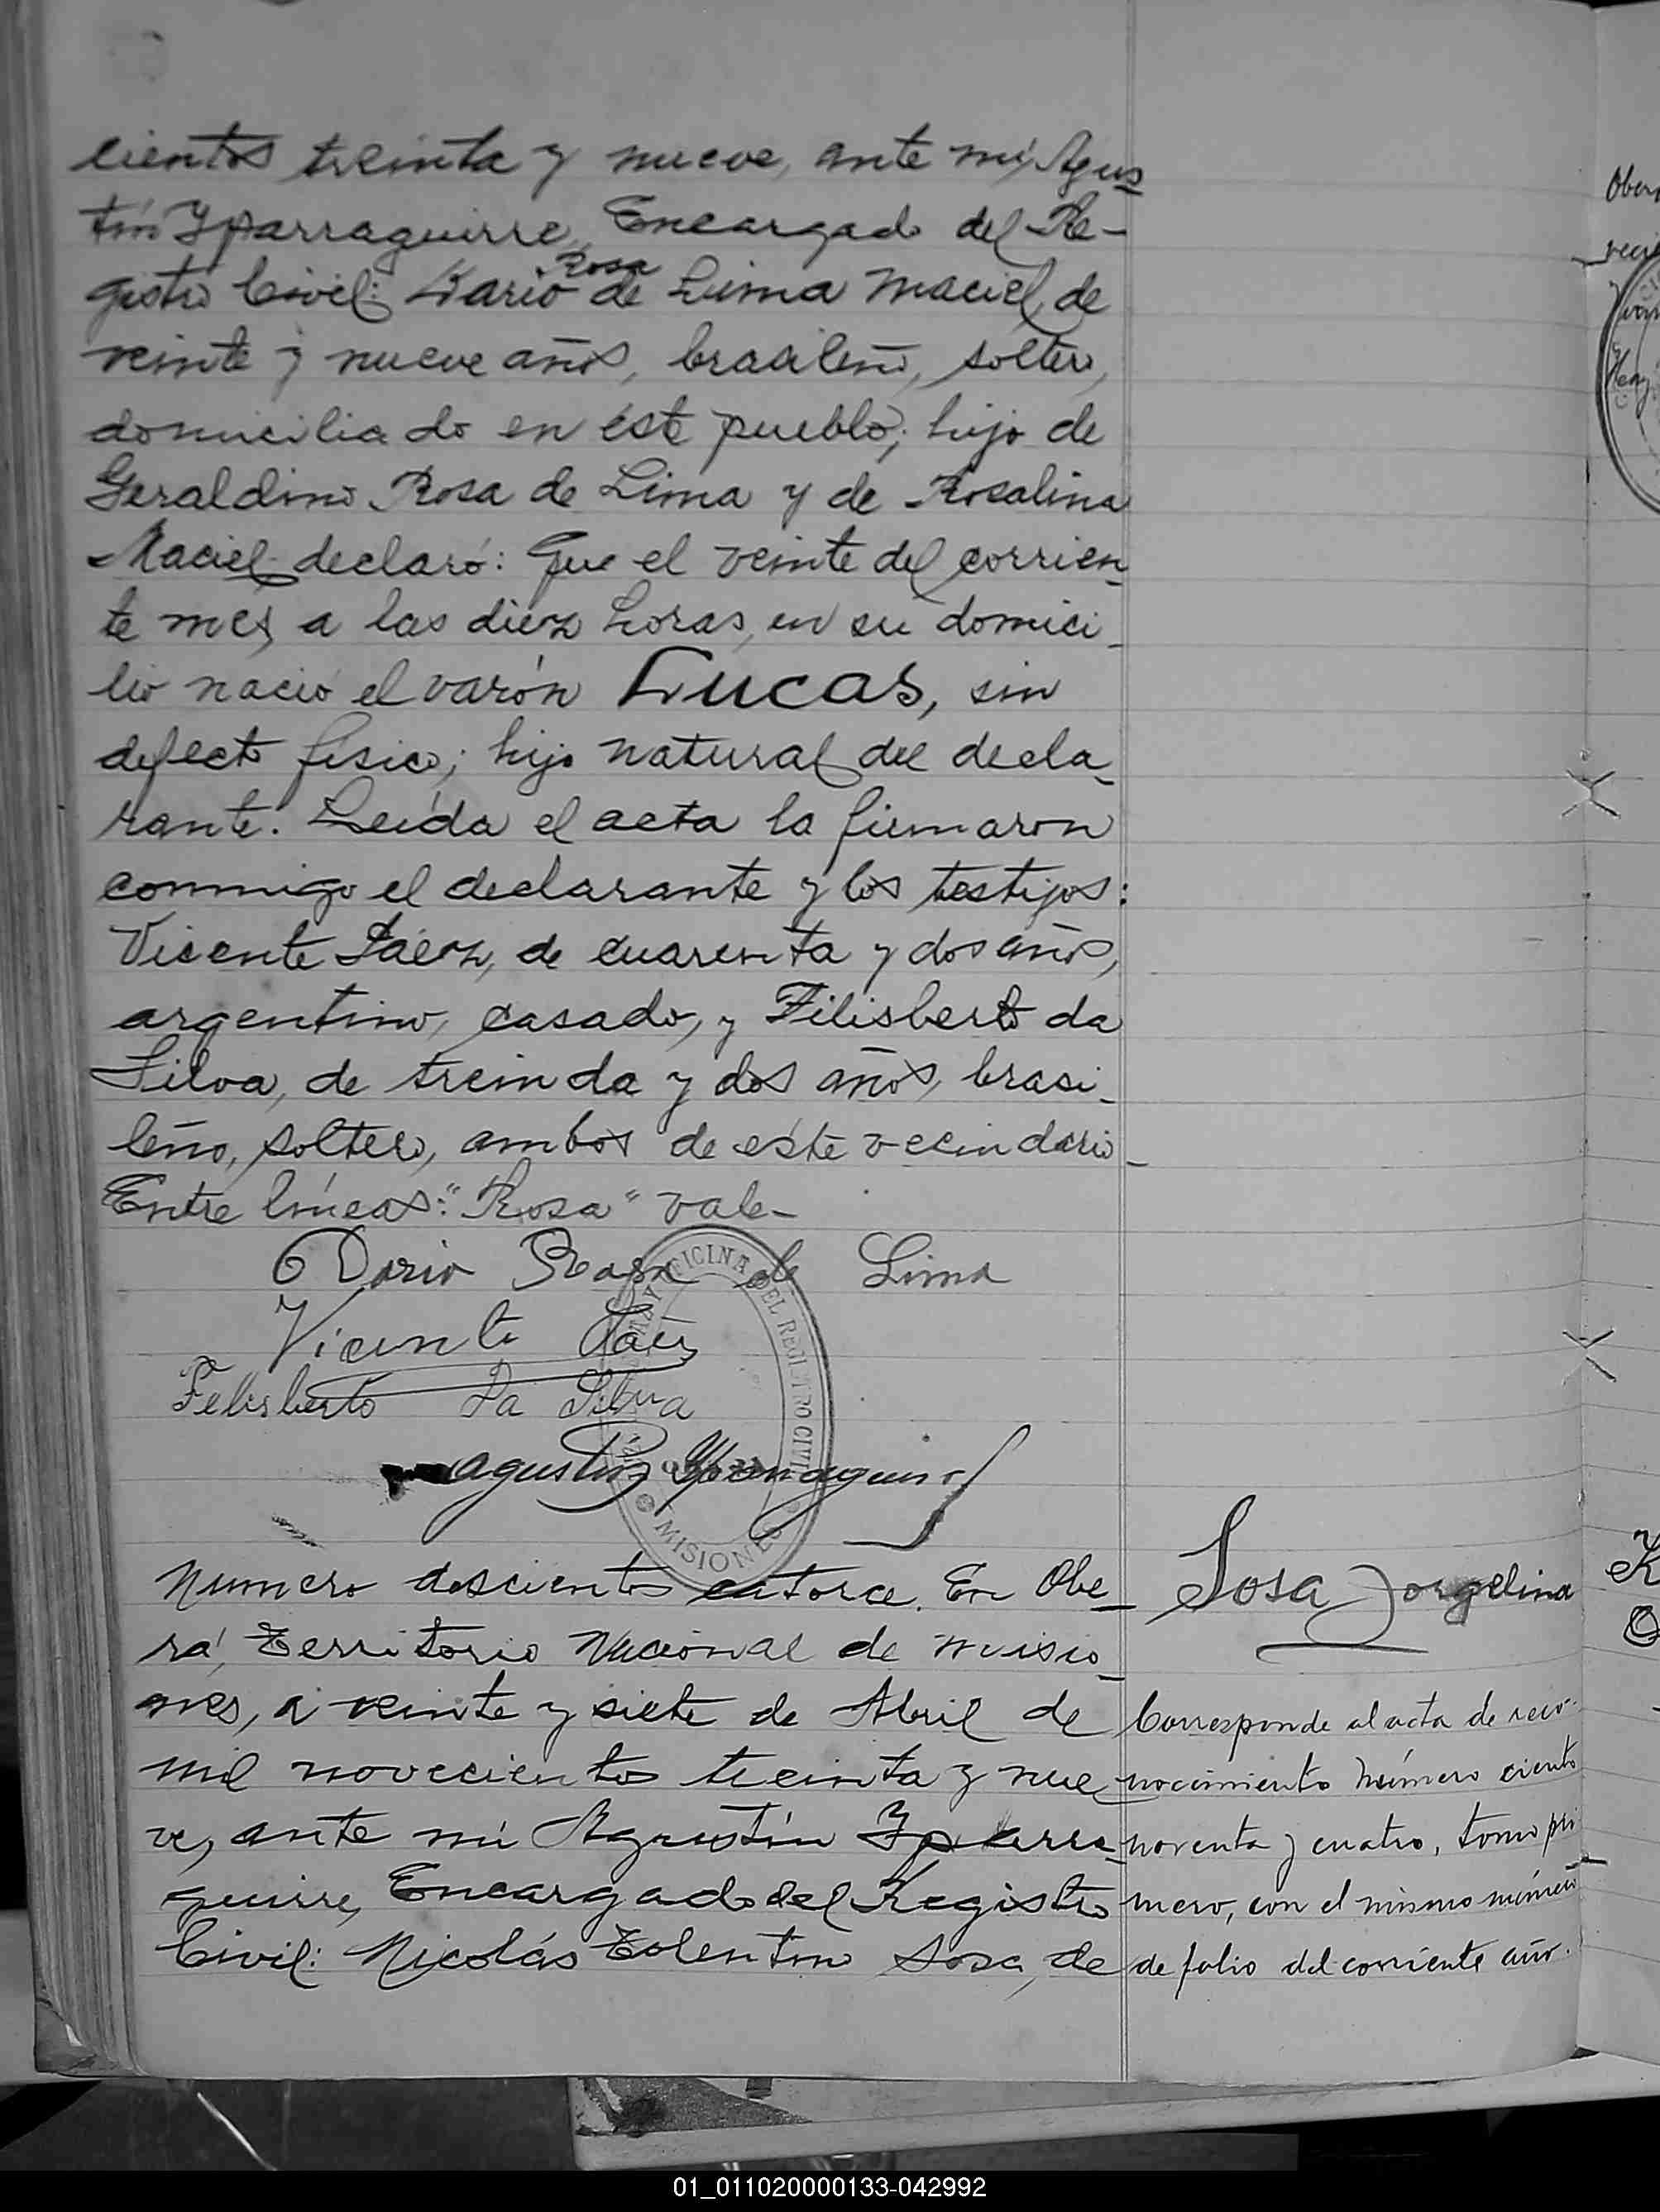 cientos treinta y nueve, ante mi, Agus_
tín Yparraguirre, Encargado del Re-
gistro Civil: Dario Rosa de Lima Maciel, de
veinte y nueve años, brasileño, soltero,
domiciliado en éste pueblo; hijo de
Geraldino Rosa de Lima y de Rosalina
Maciel declaró: Que el veinte del corrien_
te mes, a las diez horas, en su domici_
lio nació el varón Lucas, sin
defecto físico; hijo natural del decla_
rante. Leída el acta la firmaron
conmigo el declarante y los testijos:
Vicente Sáez, de cuarenta y dos años,
argentino, casado, y Filisberto da
Silva, de treinda y dos años, brasi_
leño, soltero, ambos de éste vecindario_
Entre líneas: "Rosa" vale-
Dario Rosa de Lima
Vicente Saez
Felisberto Da Silva
Agustín Yparraguirre
OFICINA DEL REGISTRO CIVIL
MISIONES
Numero doscientos catorce. En Obe_
rá, Territorio Nacional de Misio_
nes, a veinte y siete de Abril de
mil novecientos treinta y nue
ve, ante mi Agustín Yparra_
guirre, Encargado del Registro
Civil: Nicolás Tolentino Sosa, de
Sosa Jorgelina
Corresponde al acta de reco-
nocimiento número ciento
noventa y cuatro, tomo pri
mero, con el mismo número
de folio del corriente año.
01_011020000133-042992